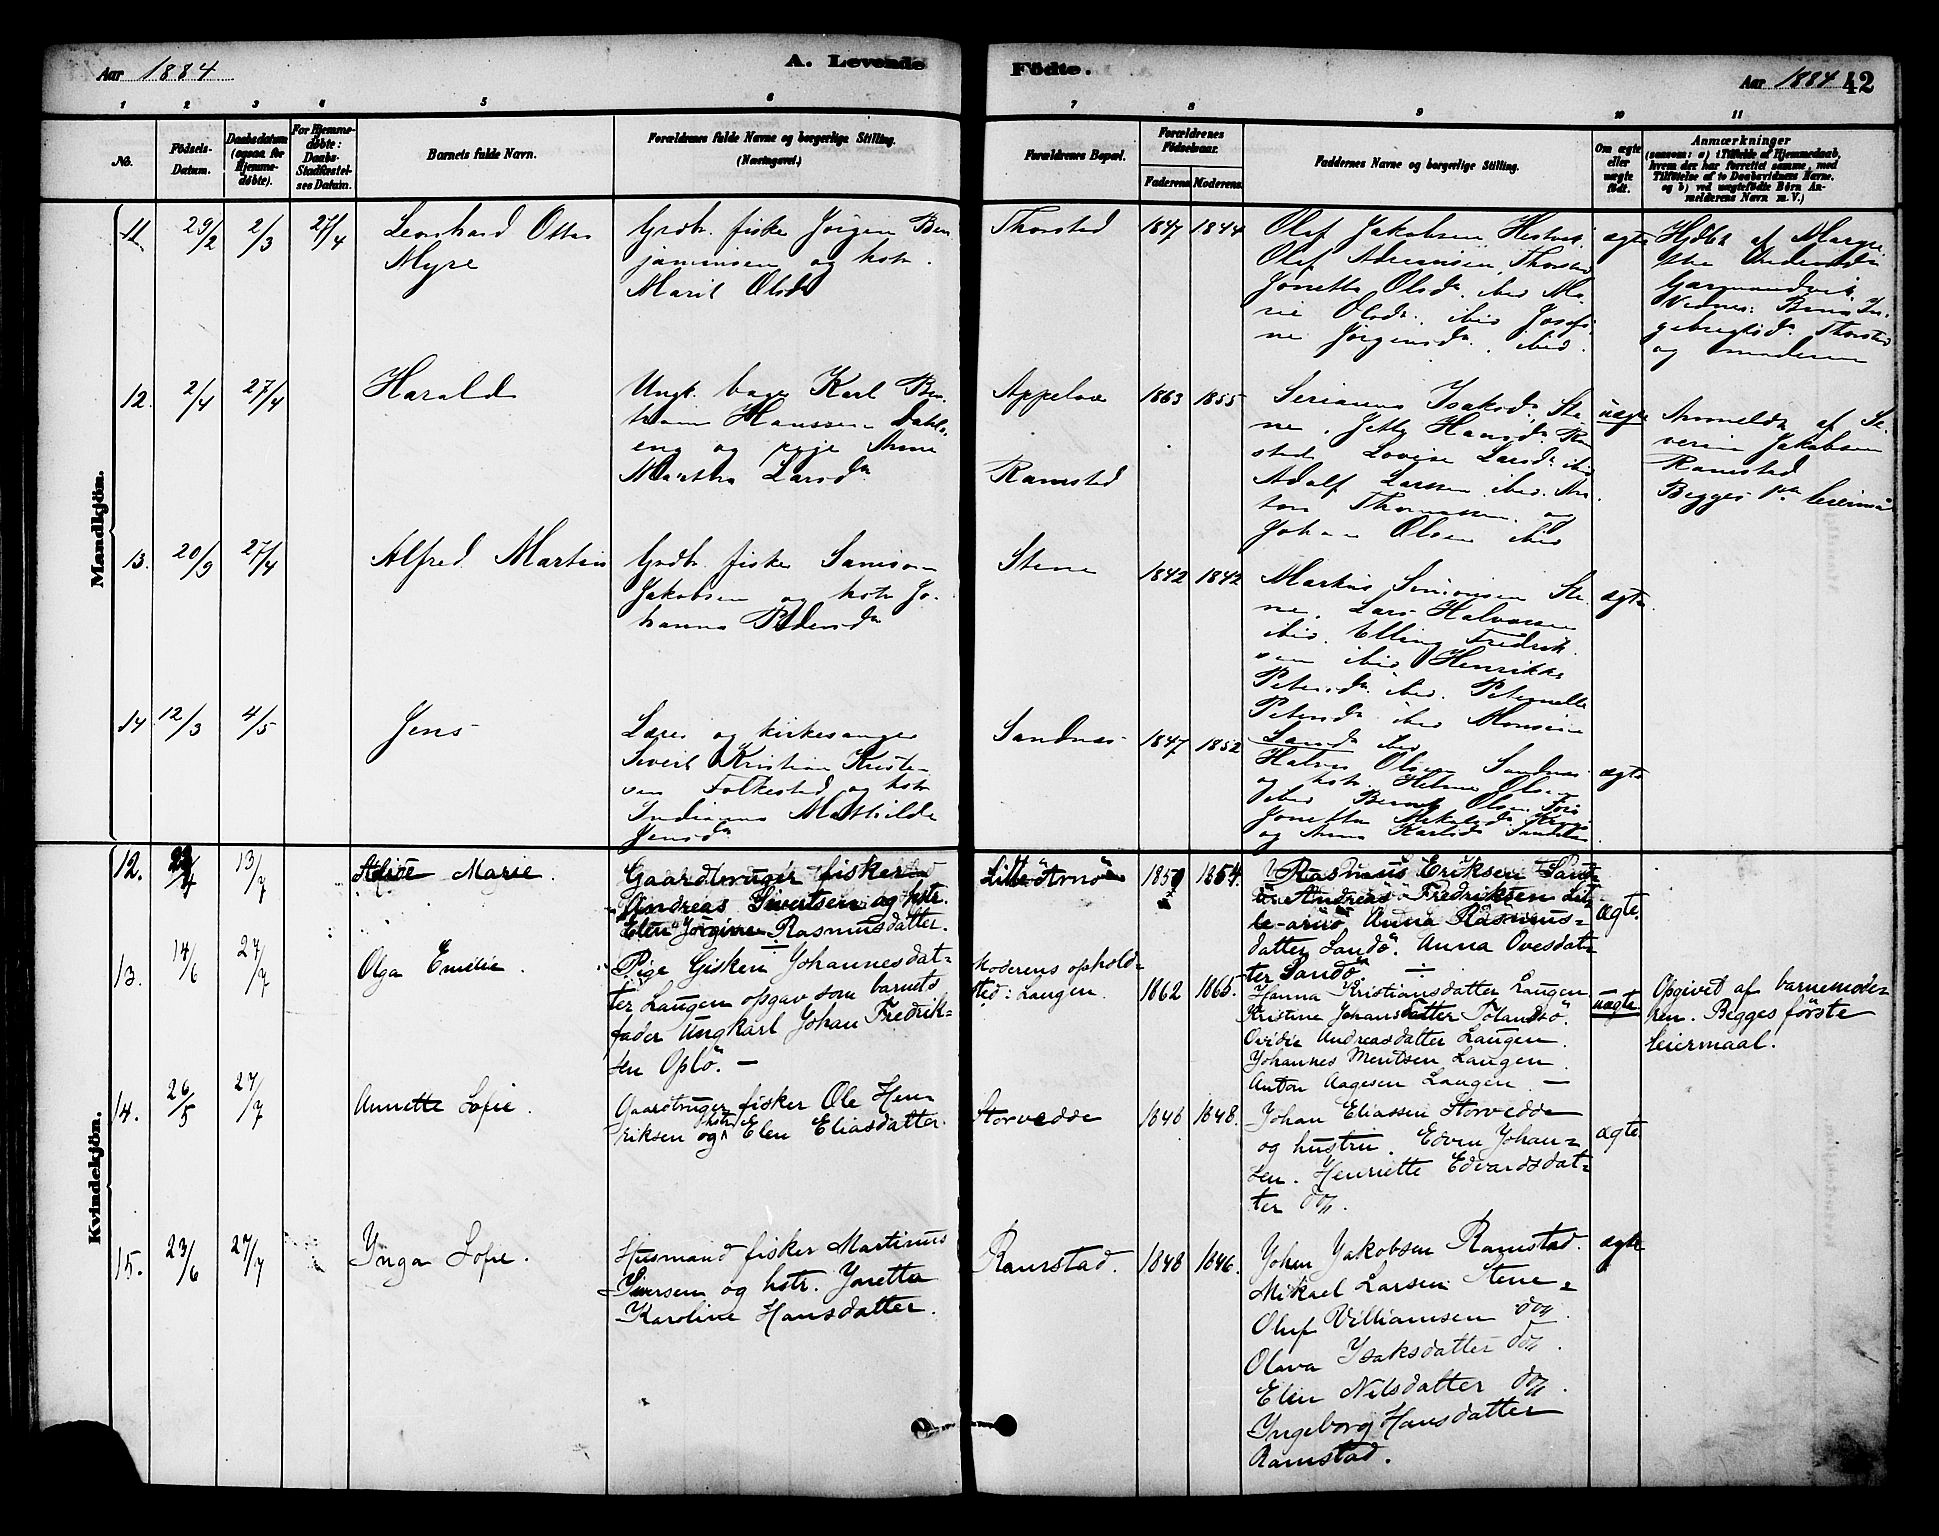 Aar 1884
A. Levende
Födte.
Aar 1884 42
1 2 3 4 5 6 7 8 9 10 11
No.
Födsels-Datum.
Daabsdatum (ogsaa for Hjemmedöbte).
For Hjemmedöbte: Daabs-Stadfæstelses Datum.
Barnets fulde Navn.
Forældrenes fulde Navne og borgerlige Stilling.
(Næringsvei.)
Forældrenes Bopæl.
Forældrenes Födselsaar.
Faderens. Moderens.
Faddernes Navne og borgerlige Stilling.
Om ægte eller uægte födt.
Anmærkninger
(saasom: a) i Tilfælde af Hjemmedaab, hvem der har forrettet samme, med Tilföielse af to Daabsvidners Navne. og b) ved uægtefödte Börn Anmelderens Navn m. V.)
Mandkjön.
11 29/2 2/3 27/4
Leonhard Otter
Myre
Grdbr. fisker Jörgen Ben
jaminsen og hstr.
Marit Olsdr
Thorstad
1847 1844
Olef Jakobsen
Olef Adriansen, Thorstad
Jonetta Olsdr. ibid Ma-
rie Olsdr. ibid Josefi
ne Jörgensdr. ibid.
ægte
Hjdbt af Margre
the Andersdr
Vidner: Berit In-
gebregtsdr. Thorstad
og moderen
12. 2/4 27/4
Harald
Ungk. bager Karl Ben
Hanssen Dahls
eng og pige Anne
Martha Larsdr
Appelvær
Ramstad
1863 1855
Serianna Isaksdr. Ste
ne, Jette Hansdr. Ram
stad Lovise Larsdr. ibid
Adolf Larssen ibid. An
ton Thomassen og
Johan Olsen ibid
uægte
Anmeldt af Se-
verin Jakobsen
Ramstad
Begges 1ste leiermaal
13. 20/3 27/4
Alfred Martin
Grdbr. fisker Simon
Jakobsen og hstr Jo-
hanna Pedersdr
Stene
1842 1842
Markus Simonsen Ste
ne, Lars Halvorsen
ibid. Elling Fredrik
sen ibid Henrikke
Petersdr ibid. Peternelle
Petersdr ibid
ægte
14 12/3 4/5
Jens
Lærer og kirkesanger
Sivert Kristian Kriste
sen Folkestad og hstr
Indianna Mathilde
Jensdr
Sandnæs
1847 1852
Halvor Olsen Sandnæs
og hstr. Helene Olsen
ibid Bernt Olsen
Jonetta
og Anna Karlsdr
ægte
Kvindekjön.
12. 13/7
Marie.
Gaardbruger fisker
Andreas Sivertsen og hstr.
Elen Jörgine Rasmusdatter.
Lille Arnö
1854.
Rasmus Eriksen Sand
ö. Andreas Fredriksen Lit
le-arnö Anna Rasmus-
datter Sandö. Anna Ovesdat-
ter Sandö. ÷
ægte.
13. 14/6 27/7
Olga Emilie.
Pige Gisken Johannesdat-
ter Laugen opgav som barnets
fader Ungkarl Johan Fredrik-
sen Oplö. —
Moderens ophold-
sted: Laugen.
1862 1865.
Hanna Kristiansdatter Laugen
Kristine Johansdatter Tölandsö.
Ovidie Andreasdatter Laugen.
Johannes Meritsen Laugen.
Anton Aagesen Laugen. —
uægte
Opgivet af barnemode-
ren. Begges förste
leiermaal.
14. 26/5 27/7
Annette Lofie.
Gaardbruger fisker Ole Hen-
riksen og hstr Elen Eliasdatter.
Storvedde
1846 1848.
Johan Eliassen Storvedde
og hustru. Edvin Johan-
sen. Henriette Edvardsdat-
ter do.
ægte.
15. 23/6 27/7
Ynga Lofie.
Husmand fisker Martinus
Iversen og hstr. Jonetta
Karoline Hansdatter.
Ramstad.
1848 1846.
Johan Jakobsen Ramstad.
Mikael Larsen Stene-
Oluf Villiamsen do.
Olava Ysaksdatter do.
Elen Nilsdatter do.
Yngeborg Hansdatter
Ramstad.
ægte